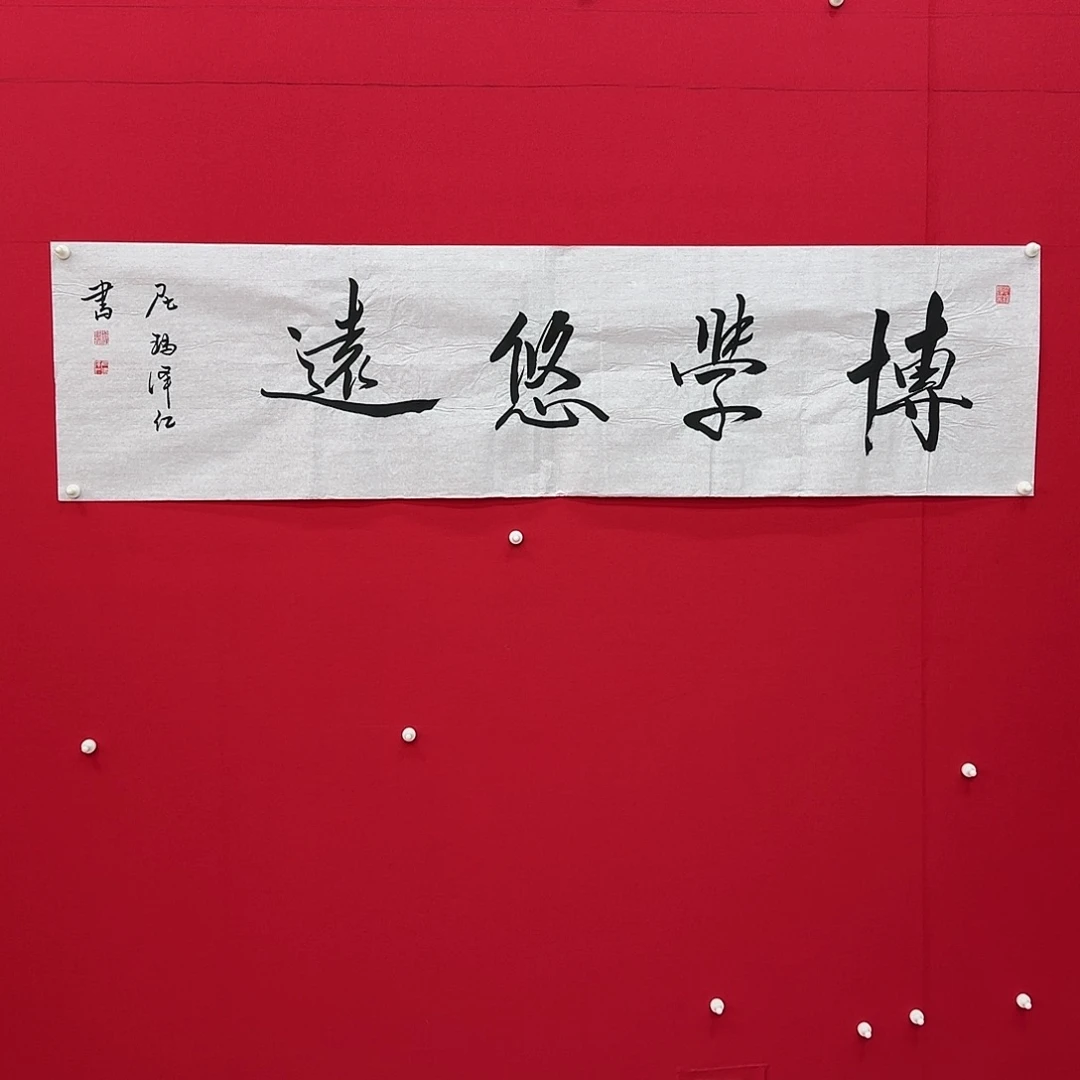 博學悠遠
尼瑪澤仁
書